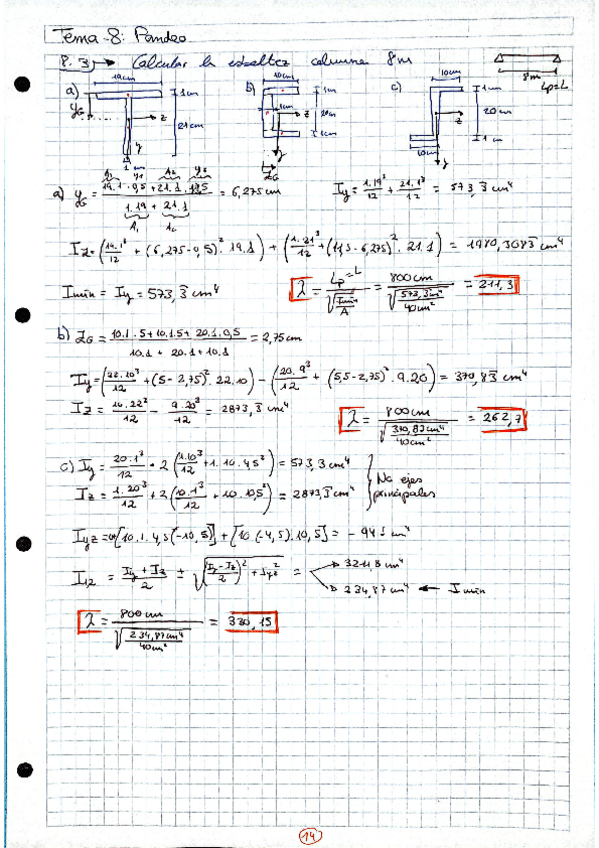 Tema 8: Pandeo
8.3 → Calcular la esbeltez columna 8m
19cm
10cm
10cm
8m
Lp=L
a)
b)
c)
1cm
21cm
1cm
1cm
20cm
1cm
1cm
20cm
1cm
10cm
yG
z
y
zG
A1 y1 A2 y2
a) yG = 19.1.0,5 + 21.1.11,5 / 1.19 + 21.1 = 6,275cm
A1 A2
Iy = 1.19³/12 + 21.1³/12 = 573,3 cm⁴
Iz = (19.1³/12 + (6,275-0,5)².19.1) + (1.21³/12 + (11,5-6,275)².21.1) = 1980,3083 cm⁴
Imin = Iy = 573,3 cm⁴
λ = Lp=L / √(Imin/A) = 800cm / √(573,3cm⁴/40cm²) = 211,3
b) ZG = 10.1.5+10.1.5+20.1.0,5 / 10.1 + 20.1+10.1 = 2,75cm
Iy = (22.10³/12 + (5-2,75)².22.10) - (20.9³/12 + (5,5-2,75)².9.20) = 370,83 cm⁴
Iz = 10.22³/12 - 9.20³/12 = 2873,3 cm⁴
λ = 800cm / √(370,83cm⁴/40cm²) = 262,7
c) Iy = 20.1³/12 + 2(1.10³/12 + 1.10.4,5²) = 573,3 cm⁴
Iz = 1.20³/12 + 2(10.1³/12 + 10.10,5²) = 2873,3 cm⁴
No ejes principales
Iyz = [10.1.4,5(-10,5)] + [10.(-4,5).10,5] = -945 cm⁴
I1,2 = Iy + Iz / 2 ± √((Iy-Iz/2)² + Iyz²) = → 3211,8 cm⁴
→ 234,87 cm⁴ ← Imin
λ = 800cm / √(234,87cm⁴/40cm²) = 330,15
14